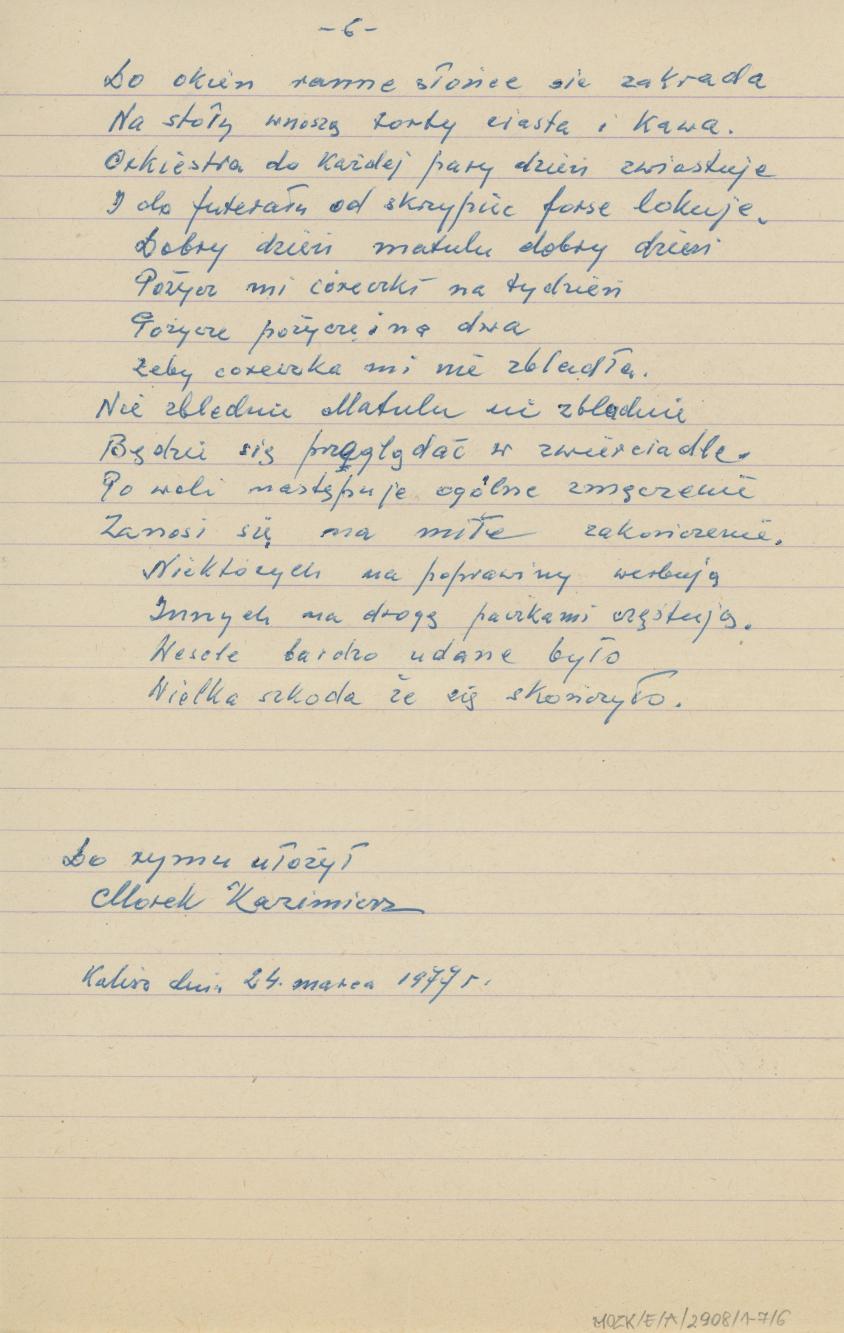 -6-
Do okien ranne słońce sie zakrada
Na stoły wnoszą torty ciasta i kawa.
Orkiestra do każdej pary dzień zwiastuje
I do futerału od skrzypiec forse lokuje.
Dobry dzień matulu dobry dzień
Pożycz mi córeczki na tydzień
Pożycze pożycze i na dwa
Żeby coreczka mi nie zbladła.
Nie zblednie Matulu nie zbladnie
Będzie się przęglądać w zwierciadle.
Po woli następuje ogólne zmęczenie
Zanosi się na miłe zakończenie.
Niektórych na poprawiny werbują
Innych na drogę paczkami częstują.
Wesele bardzo udane było
Wielka szkoda że się skończyło.
Do rymu ułożył
Morek Kazimierz
Kalisz dnia 24. marca 1977 r.
MOZK/E/A/2908/1-7/6